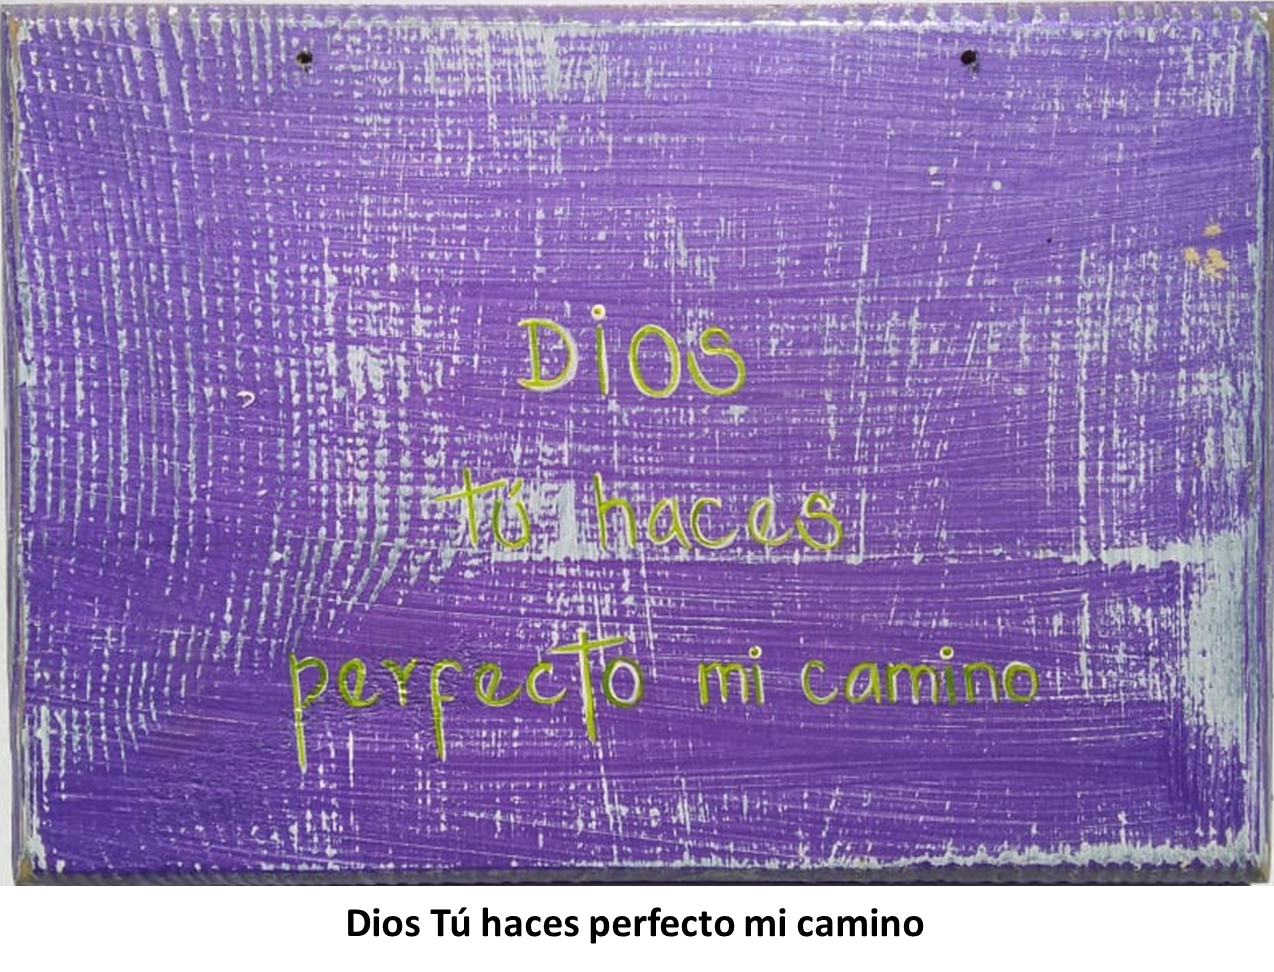 Dios
tú haces
perfecto mi camino
Dios Tú haces perfecto mi camino